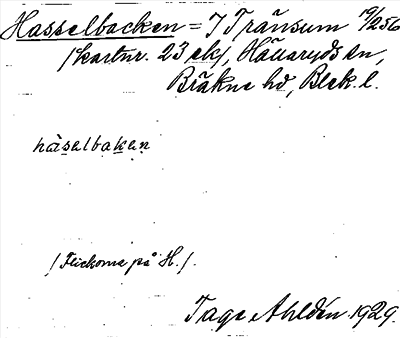 Hasselbacken = I Tränsum 19/256
/kartnr. 23 ek/, Hällaryds sn,
Bräkne hd, Blek. l.
hàselbaken
/Flickorna på H./
Tage Ahldén 1929.